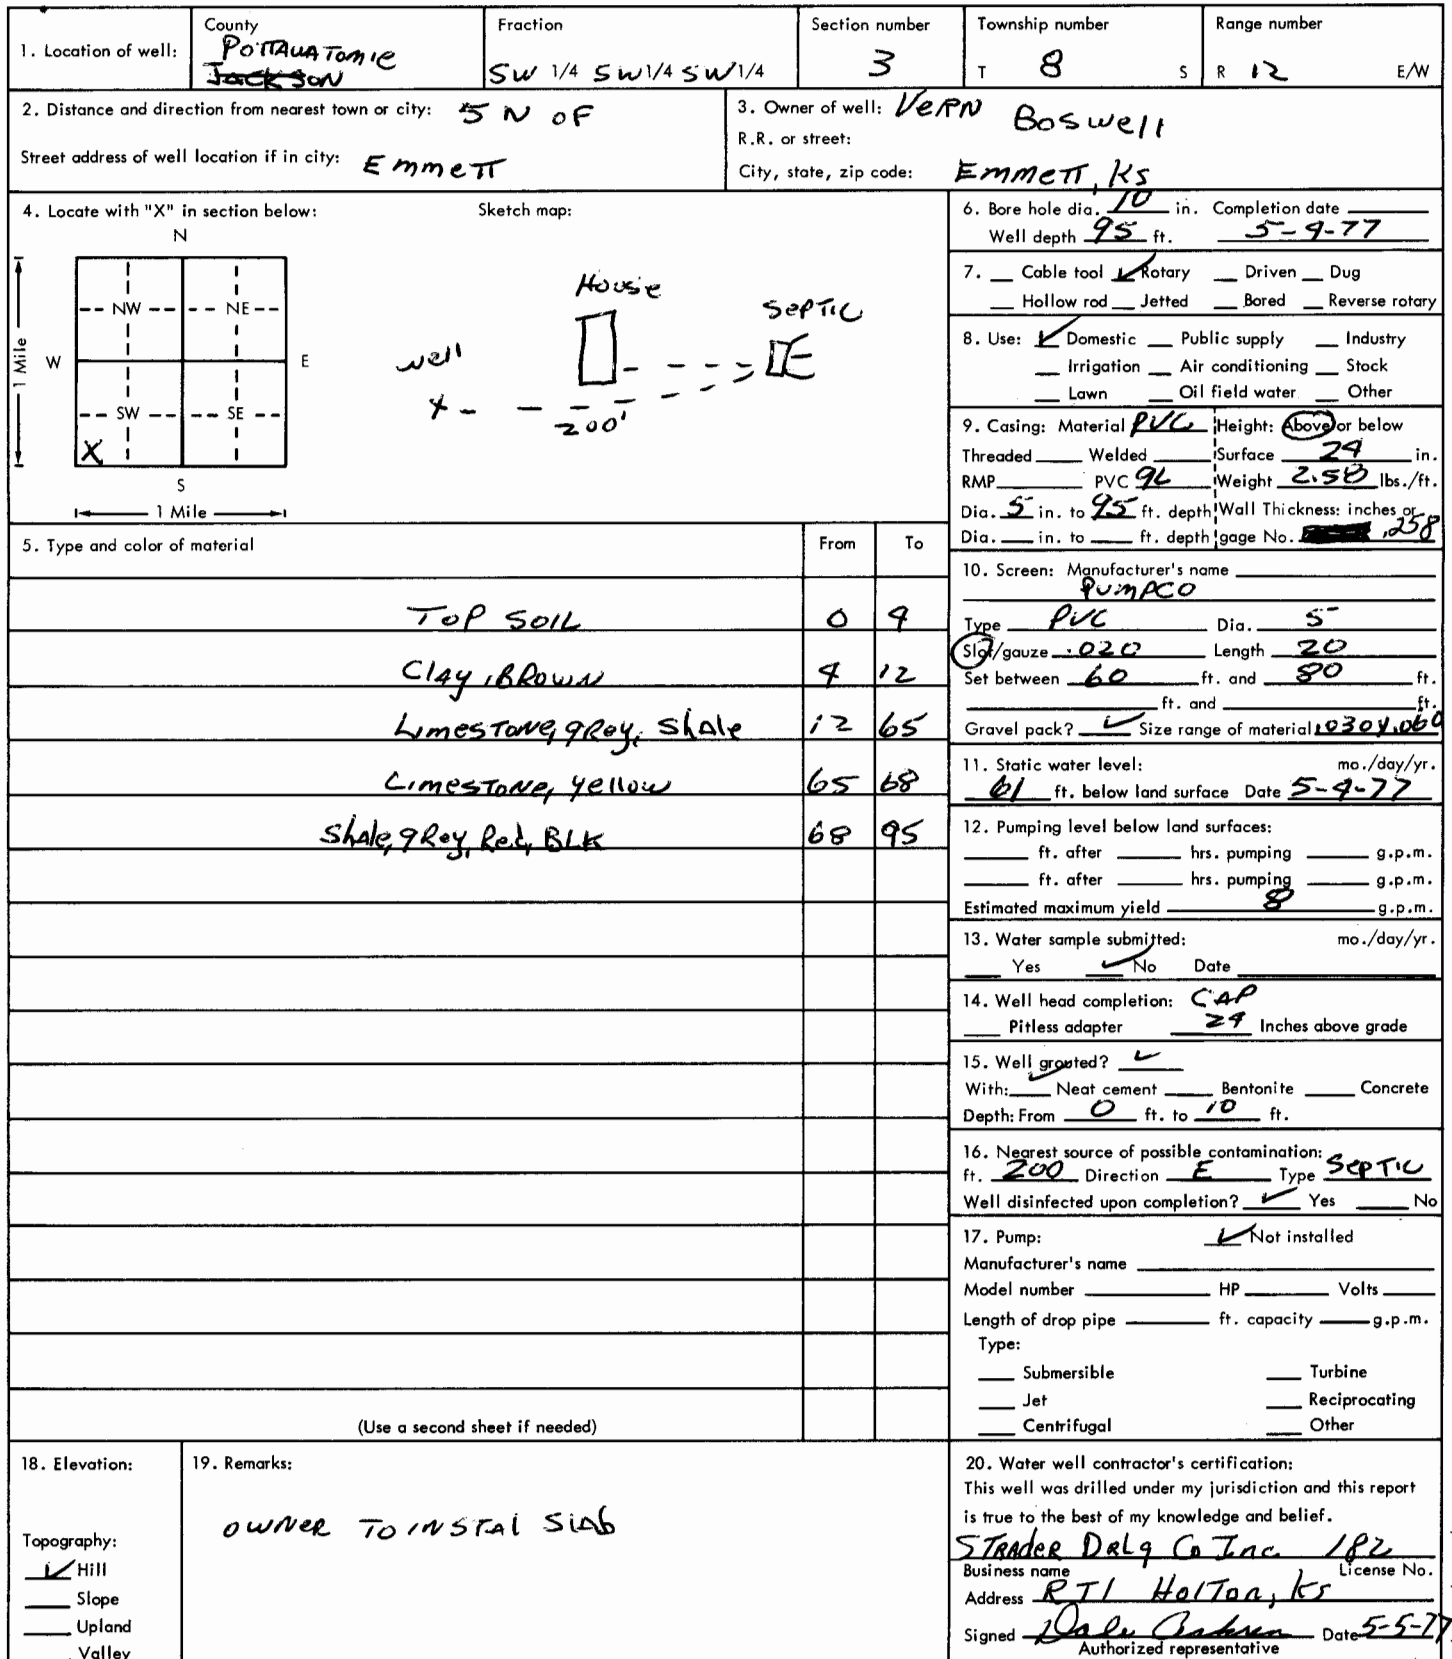 1. Location of well:
County
Pottawatomie
Jackson
Fraction
SW 1/4 SW 1/4 SW 1/4
Section number
3
Township number
T 8 S
Range number
R 12 E/W
2. Distance and direction from nearest town or city: 5 N OF
Street address of well location if in city: Emmett
3. Owner of well: Vern Boswell
R.R. or street:
City, state, zip code: Emmett, Ks
4. Locate with "X" in section below:
N
NW NE
W E
SW SE
X
S
1 Mile
1 Mile
Sketch map:
House
Septic
well
x
200'
5. Type and color of material From To
Top Soil 0 4
Clay, Brown 4 12
Limestone, grey, Shale 12 65
Limestone, Yellow 65 68
Shale, grey, Red, BLK 68 95
(Use a second sheet if needed)
6. Bore hole dia. 10 in. Completion date
Well depth 95 ft. 5-4-77
7. Cable tool ✓ Rotary Driven Dug
Hollow rod Jetted Bored Reverse rotary
8. Use: ✓ Domestic Public supply Industry
Irrigation Air conditioning Stock
Lawn Oil field water Other
9. Casing: Material PVC Height: Above or below
Threaded Welded Surface 24 in.
RMP PVC Weight 2.58 lbs./ft.
Dia. 5 in. to 95 ft. depth Wall Thickness: inches or
Dia. in. to ft. depth gage No. .258
10. Screen: Manufacturer's name
Pumpco
Type PVC Dia. 5
Slot/gauze .020 Length 20
Set between 60 ft. and 80 ft.
ft. and ft.
Gravel pack? ✓ Size range of material .030 x .060
11. Static water level: mo./day/yr.
61 ft. below land surface Date 5-4-77
12. Pumping level below land surfaces:
ft. after hrs. pumping g.p.m.
ft. after hrs. pumping g.p.m.
Estimated maximum yield 8 g.p.m.
13. Water sample submitted: mo./day/yr.
Yes ✓ No Date
14. Well head completion: CAP
Pitless adapter 24 Inches above grade
15. Well grouted? ✓
With: ✓ Neat cement Bentonite Concrete
Depth: From 0 ft. to 10 ft.
16. Nearest source of possible contamination:
ft. 200 Direction E Type Septic
Well disinfected upon completion? ✓ Yes No
17. Pump: ✓ Not installed
Manufacturer's name
Model number HP Volts
Length of drop pipe ft. capacity g.p.m.
Type:
Submersible Turbine
Jet Reciprocating
Centrifugal Other
18. Elevation:
Topography:
✓ Hill
Slope
Upland
Valley
19. Remarks:
OWNER TO INSTAL Slab
20. Water well contractor's certification:
This well was drilled under my jurisdiction and this report
is true to the best of my knowledge and belief.
Strader Drlg Co Inc. 182
Business name License No.
Address RT1 Holton, Ks
Signed Dale Date 5-5-77
Authorized representative